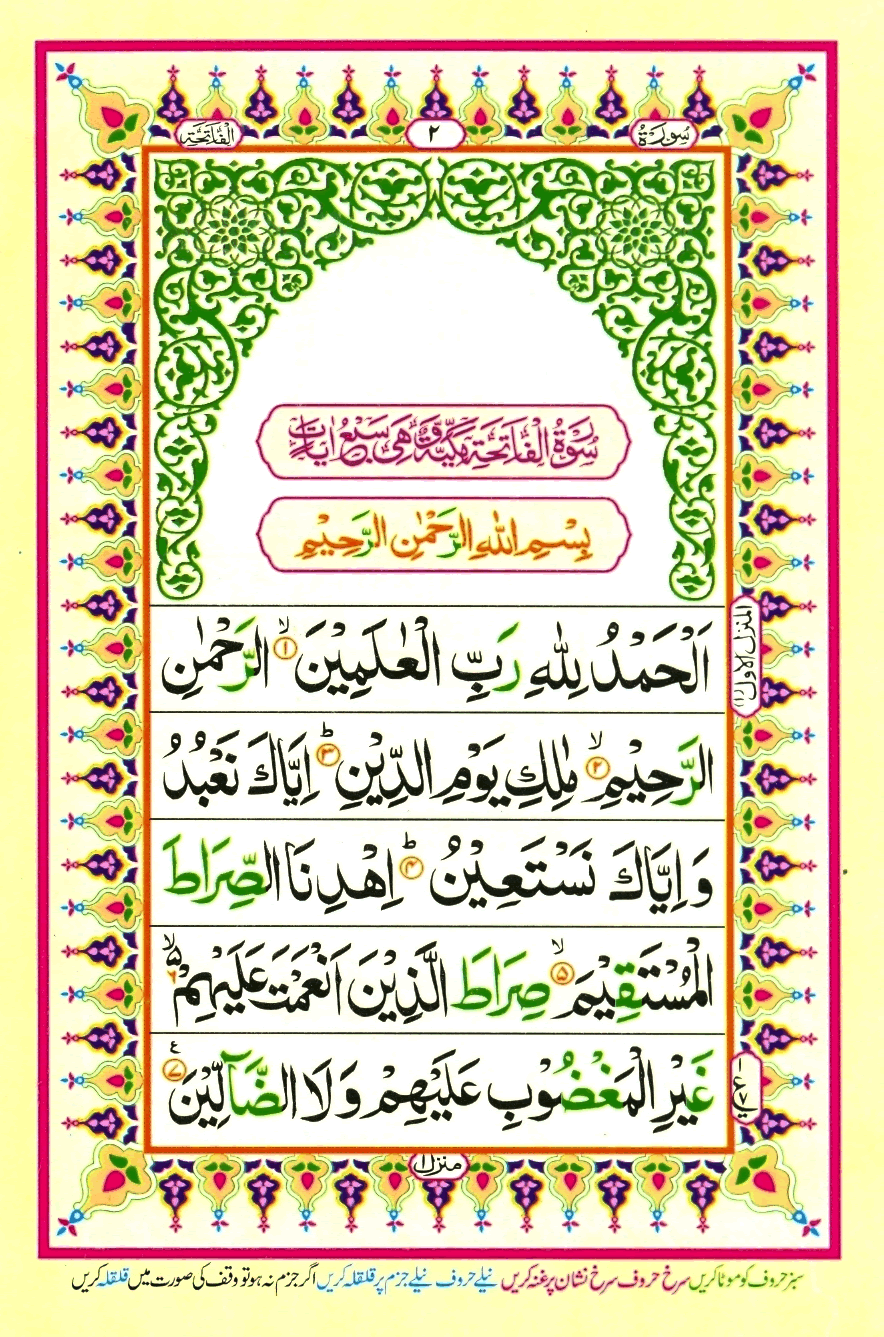 سُوْرَةُ ٢ الْفَاتِحَة
سُوْرَةُ الْفَاتِحَةِ مَكِّيَّةٌ وَّهِىَ سَبْعُ اٰيَاتٍ
بِسْمِ اللّٰهِ الرَّحْمٰنِ الرَّحِيْمِ
اَلْحَمْدُ لِلّٰهِ رَبِّ الْعٰلَمِيْنَ ۙ‏﴿۱﴾ الرَّحْمٰنِ
الرَّحِيْمِ ۙ‏﴿۲﴾ مٰلِكِ يَوْمِ الدِّيْنِ ؕ‏﴿۳﴾ اِيَّاكَ نَعْبُدُ
وَ اِيَّاكَ نَسْتَعِيْنُ ؕ‏﴿۴﴾ اِهْدِنَا الصِّرَاطَ
الْمُسْتَقِيْمَ ۙ‏﴿۵﴾ صِرَاطَ الَّذِيْنَ اَنْعَمْتَ عَلَيْهِمْ ۙ۵ ۶
غَيْرِ الْمَغْضُوْبِ عَلَيْهِمْ وَ لَا الضَّآلِّيْنَ ﴿۷﴾ ع
المنزل الاول (۱)
منزل ۱
سبز حروف کو موٹا کریں سرخ حروف سرخ نشان پر غنہ کریں نیلے حروف نیلے جزم پر قلقلہ کریں اگر جزم نہ ہو تو وقف کی صورت میں قلقلہ کریں